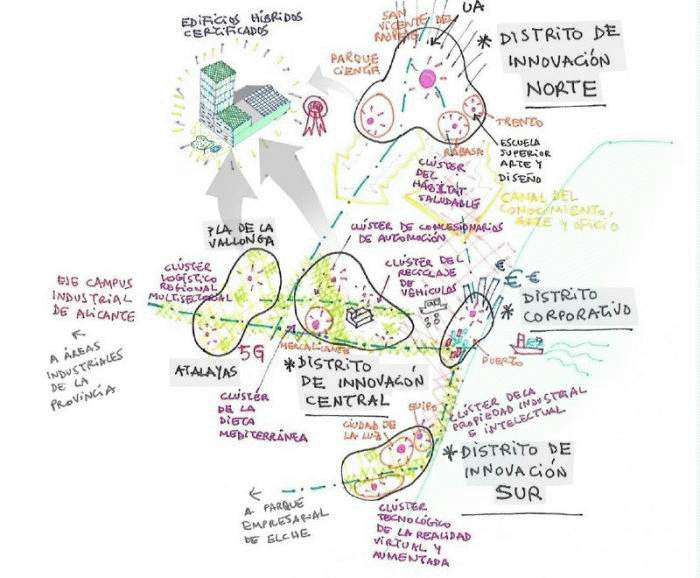 EDIFICIOS HÍBRIDOS
CERTIFICADOS
SAN
VICENTE DEL
RASPEIG
UA
* DISTRITO DE
INNOVACIÓN
NORTE
PARQUE
CIENCIA
TRENTO
RABASA
ESCUELA
SUPERIOR
ARTE Y
DISEÑO
CLÚSTER
DEL
HÁBITAT
SALUDABLE
CANAL DEL
CONOCIMIENTO,
ARTE Y OFICIO
PLA DE LA
VALLONGA
CLÚSTER DE CONCESIONARIOS
DE AUTOMOCIÓN
CLÚSTER
LOGÍSTICO
REGIONAL
MULTISECTORIAL
CLÚSTER DEL
RECICLAJE
DE
VEHÍCULOS
€ € €
* DISTRITO
CORPORATIVO
EJE CAMPUS
INDUSTRIAL
DE ALICANTE
A ÁREAS
INDUSTRIALES
DE LA
PROVINCIA
5G
ATALAYAS
MERCALICANTE
PUERTO
* DISTRITO
DE INNOVACIÓN
CENTRAL
CLÚSTER
DE LA
DIETA
MEDITERRÁNEA
CLÚSTER DE LA
PROPIEDAD INDUSTRIAL
E INTELECTUAL
EUIPO
CIUDAD DE
LA LUZ
* DISTRITO DE
INNOVACIÓN
SUR
A PARQUE
EMPRESARIAL
DE ELCHE
CLÚSTER
TECNOLÓGICO
DE LA REALIDAD
VIRTUAL Y
AUMENTADA